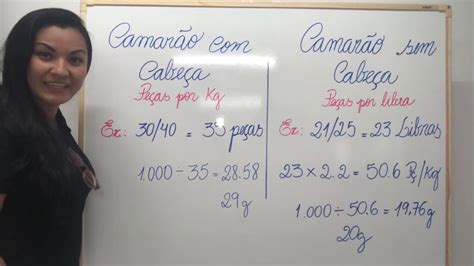 Camarão com
Cabeça
Peças por Kg
Ex: 30/40 = 35 peças
1.000 ÷ 35 = 28.58
29g
Camarão sem
Cabeça
Peças por libra
Ex: 21/25 = 23 Libras
23 × 2.2 = 50.6 Pç/Kg
1.000 ÷ 50.6 = 19,76g
20g